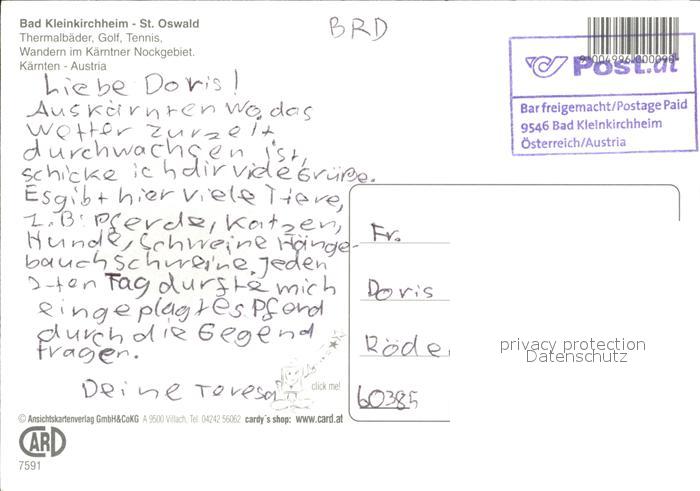 Bad Kleinkirchheim - St. Oswald
Thermalbäder, Golf, Tennis,
Wandern im Kärntner Nockgebiet.
Kärnten - Austria
BRD
Post.at
Bar freigemacht/Postage Paid
9546 Bad Kleinkirchheim
Österreich/Austria
Liebe Doris!
Aus Kärnten wo das
Wetter zurzeit
durchwachsen ist,
schicke ich dir viele Grüße.
Es gibt hier viele Tiere,
z.B. Pferde, Katzen,
Hunde, Schweine Hänge-
bauchschweine. Jeden
2-ten Tag durfte mich
ein geplagtes Pferd
durch die Gegend
tragen.
Deine Teresa
Fr.
Doris
Röde
60385
privacy protection
Datenschutz
click me!
© Ansichtskartenverlag GmbH&CoKG A 9500 Villach, Tel. 04242 56062 cardy´s shop: www.card.at
CARD
7591